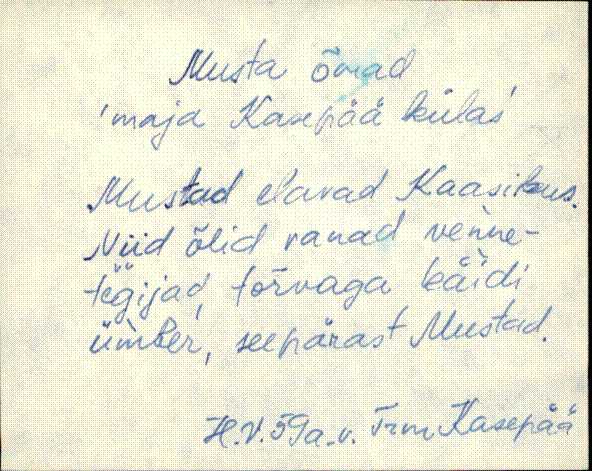 Musta õvad
'maja Kasepää külas'
Mustad elavad Kaasikus.
Niid õlid vanad venne-
tegijad, tõrvaga käidi
ümber, seepärast Mustad.
H.V. 59a.v. Trm Kasepää